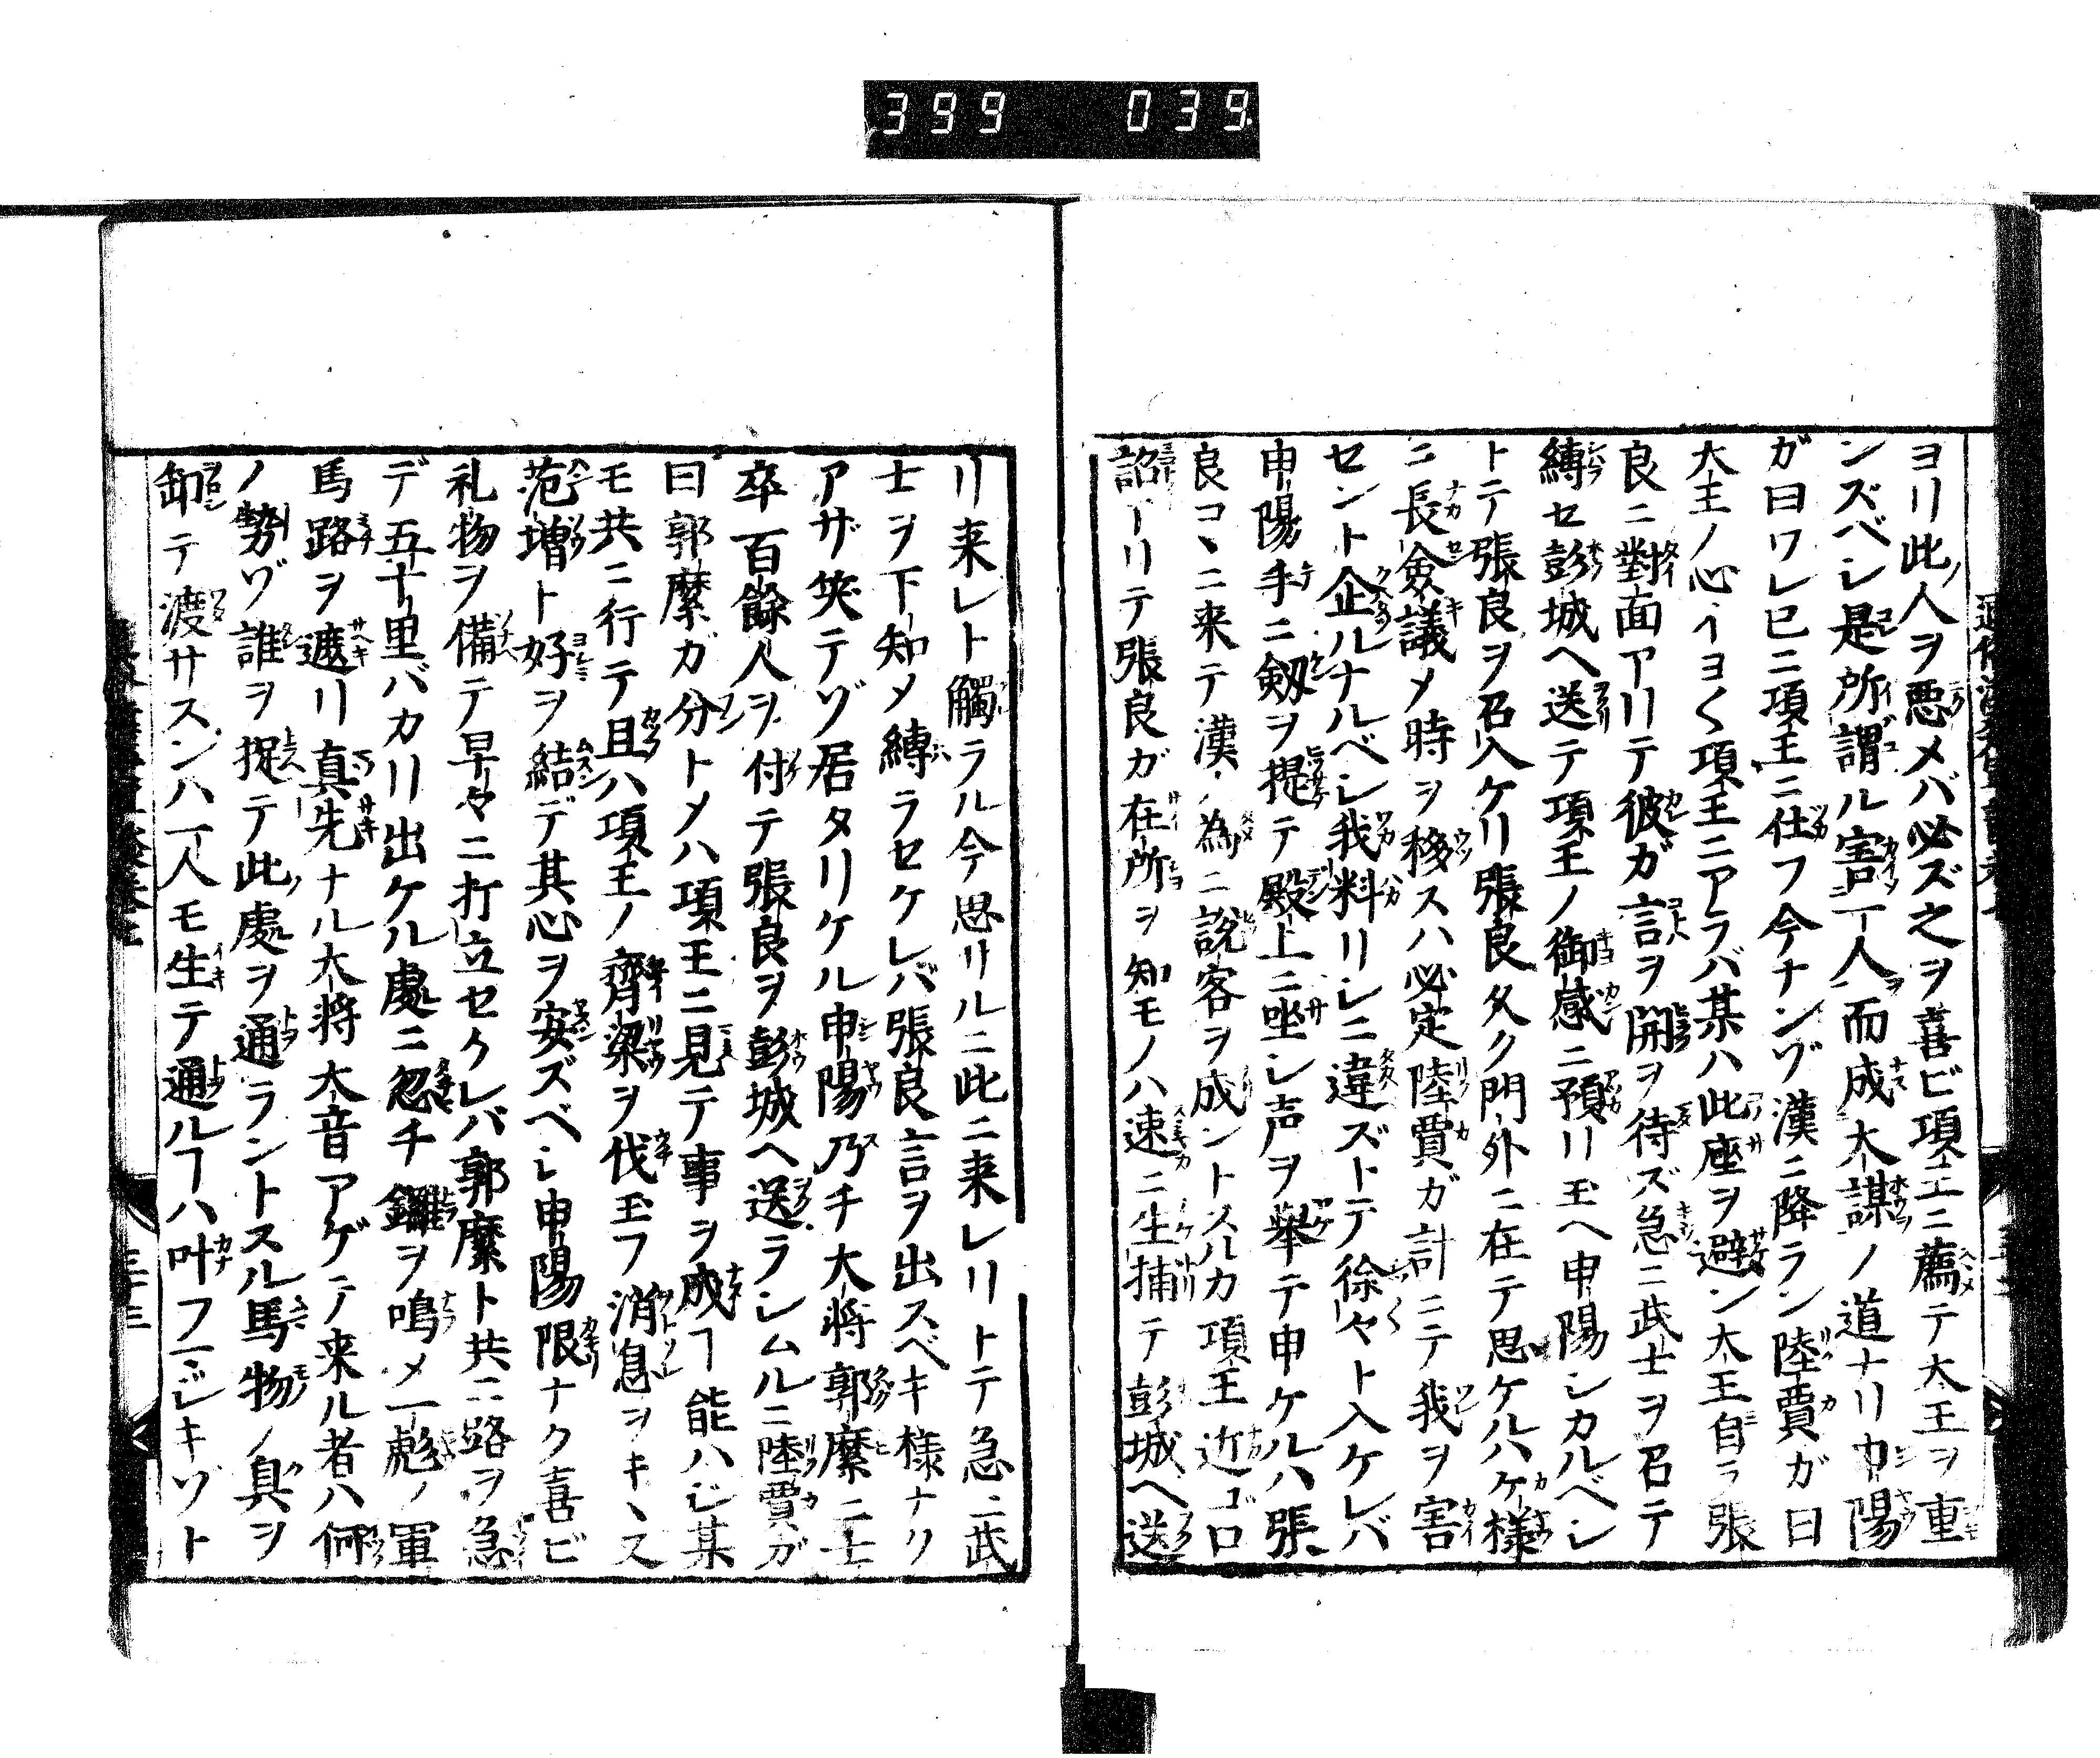 399 039
ヨリ此人ヲ悪メバ必ズ之ヲ喜ビ項王ニ薦テ大王ヲ重
ンズベシ是所謂ル害一人而成大謀ノ道ナリ申陽
ガ曰ワレ已ニ項王ニ仕フ今ナンゾ漢ニ降ラン陸賈ガ曰
大王ノ心イヨ〱項王ニアラバ某ハ此座ヲ避ン大王自ラ張
良ニ對面アリテ彼ガ言ヲ開ヲ待ズ急ニ武士ヲ召テ
縛セ彭城ヘ送テ項王ノ御感ニ預リ玉ヘ申陽シカルベシ
トテ張良ヲ召入ケリ張良久ク門外ニ在テ思ケルハケ様
ニ長僉議メ時ヲ移スハ必定陸賈ガ計ニテ我ヲ害
セント企ルナルベシ我料リシニ違ズトテ徐々ト入ケレバ
申陽手ニ剱ヲ提テ殿上ニ坐シ声ヲ挙テ申ケルハ張
良コヽニ来テ漢ノ為ニ説客ヲ成ントスルカ項王近ゴロ
詔アリテ張良ガ在所ヲ知モノハ速ニ生捕テ彭城ヘ送
リ来レト觸ラル今思リルニ此ニ来レリトテ急ニ武
士ヲ下知メ縛ラセケレバ張良言ヲ出スベキ様ナク
アザ笑テゾ居タリケル申陽乃チ大将郭縻ニ士
卒百餘人ヲ付テ張良ヲ彭城ヘ送ラシムルニ陸賈ガ
曰郭縻ガ分トメハ項王ニ見テ事ヲ成ヿ能ハジ某
モ共ニ行テ且ハ項王ノ齊梁ヲ伐玉フ消息ヲキヽス
范増ト好ヲ結デ其心ヲ安ズベシ申陽限ナク喜ビ
礼物ヲ備テ早々ニ打立セケレバ郭縻ト共ニ路ヲ急
デ五十里バカリ出ケル處ニ忽チ鑼ヲ鳴メ一彪ノ軍
馬路ヲ遮リ真先ナル大将大音アゲテ来ル者ハ何
ノ勢ゾ誰ヲ捉テ此處ヲ通ラントスル馬物ノ具ヲ
卸テ渡サスンハ一人モ生テ通ルヿハ叶フマジキゾト